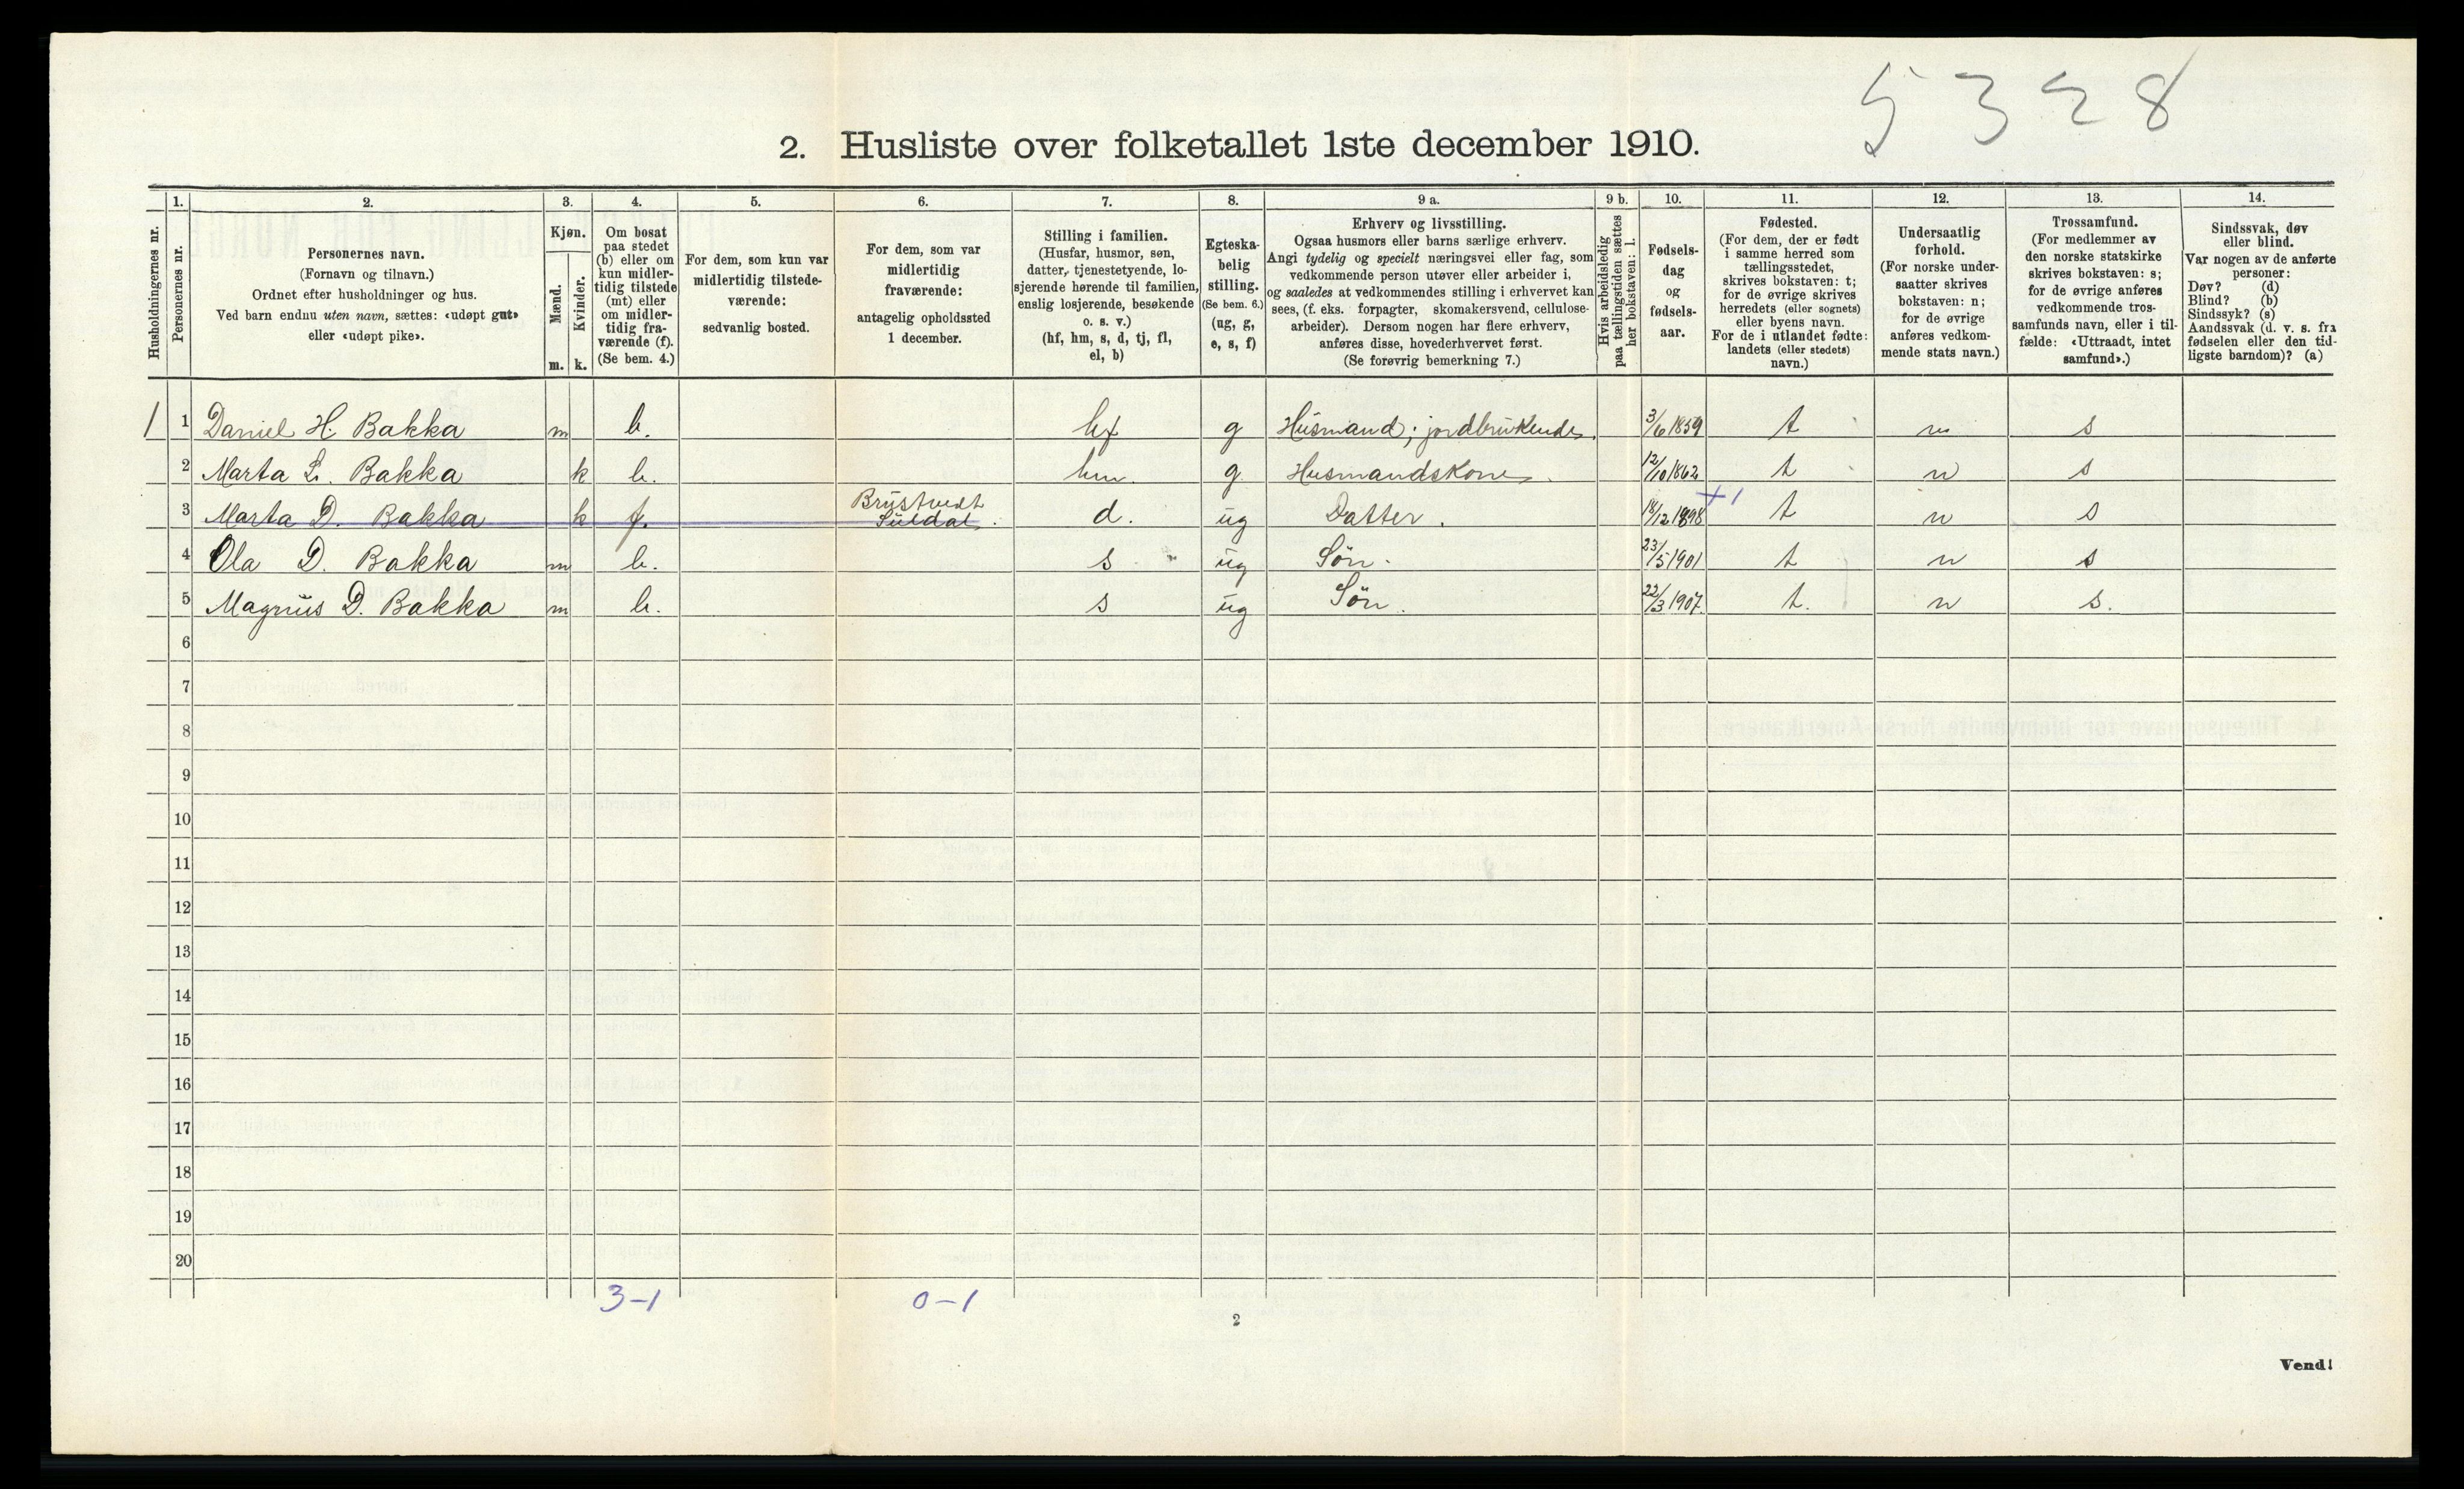 5328
2. Husliste over folketallet 1ste december 1910.
1. 2. 3. 4. 5. 6. 7. 8. 9 a. 9 b. 10. 11. 12. 13. 14.
Husholdningernes nr.
Personernes nr.
Personernes navn.
(Fornavn og tilnavn.)
Ordnet efter husholdninger og hus.
Ved barn endnu uten navn, sættes: «udøpt gut»
eller «udøpt pike».
Kjøn.
Mænd.
Kvinder.
m. k.
Om bosat
paa stedet
(b) eller om
kun midler-
tidig tilstede
(mt) eller
om midler-
tidig fra-
værende (f).
(Se bem. 4.)
For dem, som kun var
midlertidig tilstede-
værende:
sedvanlig bosted.
For dem, som var
midlertidig
fraværende:
antagelig opholdssted
1 december.
Stilling i familien.
(Husfar, husmor, søn,
datter, tjenestetyende, lo-
sjerende hørende til familien,
enslig losjerende, besøkende
o. s. v.)
(hf, hm, s, d, tj, fl,
el, b)
Egteska-
belig
stilling.
(Se bem. 6.)
(ug, g,
e, s, f)
Erhverv og livsstilling.
Ogsaa husmors eller barns særlige erhverv.
Angi tydelig og specielt næringsvei eller fag, som
vedkommende person utøver eller arbeider i,
og saaledes at vedkommendes stilling i erhvervet kan
sees, (f. eks. forpagter, skomakersvend, cellulose-
arbeider). Dersom nogen har flere erhverv,
anføres disse, hovederhvervet først.
(Se forøvrig bemerkning 7.)
Hvis arbeidsledig
paa tællingstiden sættes
her bokstaven: l.
Fødsels-
dag
og
fødsels-
aar.
Fødested.
(For dem, der er født
i samme herred som
tællingsstedet,
skrives bokstaven: t;
for de øvrige skrives
herredets (eller sognets)
eller byens navn.
For de i utlandet fødte:
landets (eller stedets)
navn.)
Undersaatlig
forhold.
(For norske under-
saatter skrives
bokstaven: n;
for de øvrige
anføres vedkom-
mende stats navn.)
Trossamfund.
(For medlemmer av
den norske statskirke
skrives bokstaven: s;
for de øvrige anføres
vedkommende tros-
samfunds navn, eller i til-
fælde: «Uttraadt, intet
samfund».)
Sindssvak, døv
eller blind.
Var nogen av de anførte
personer:
Døv? (d)
Blind? (b)
Sindssyk? (s)
Aandssvak (d. v. s. fra
fødselen eller den tid-
ligste barndom)? (a)
1 1 Daniel H. Bakka m b. hf g Husmand; jordbrukende. 3/6 1859 t n s
2 Marta L. Bakka k b. hm. g Husmandskone. 12/10 1862 t n s
3 Marta D. Bakka k f. Brustvedt Suldal. d. ug Datter. 18/12 1898 +1 t n s
4 Ola D. Bakka m b. s ug Søn. 23/5 1901 t n s
5 Magnus D. Bakka m b. s ug Søn. 22/3 1907. t. n s.
6
7
8
9
10
11
12
13
14
15
16
17
18
19
20
3-1 0-1
2
Vend!